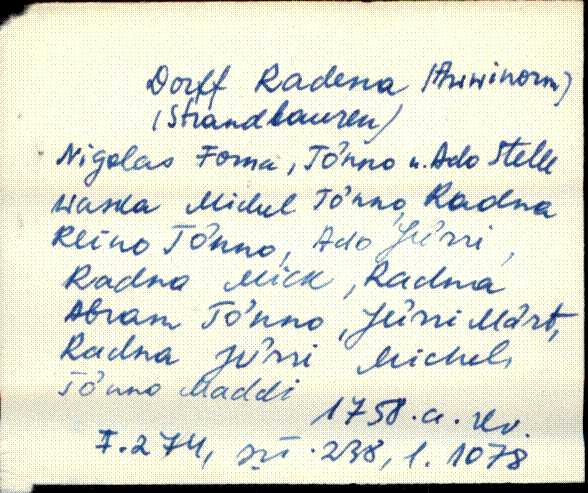 Dorff Radena (Awwinorm)
(Strandbauren)
Nigolas Foma, Tõnno u. Ado Stelle
Waska Michel Tõnno, Radna
Reino Tõnno, Ado Jürri,
Radna Mick, Radna
Abram Tõnno, Jürri Märt,
Radna Jürri Michel,
Tõnno Maddi
1758. a. rev.
F. 274, 238, l. 1078